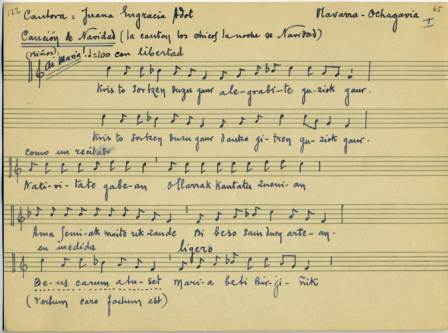 122 Cantora = Juana Engracia Adot Navarra - Ochagavia 65
Canción de Navidad (la cantan los chicos la noche de Navidad) I
(niños) Ai Maria! ♩=100 con libertad
Kris to Sortzen duzu gaur ale-grabi-te guziek gaur.
Kris to Sortzen duzu gaur dantza gi-tren gu-ziek gaur.
como un recitado
Nati-vi-tate gabe-an Ollarrak Kantatu zueni-an
Ama Semi-ak maite-rik zaude Bi beso Sainduen arte-an.
en medida ligero
Be-us carum atu-set Mari-a beti Bir-ji-ñik
(Verbum caro factum est)